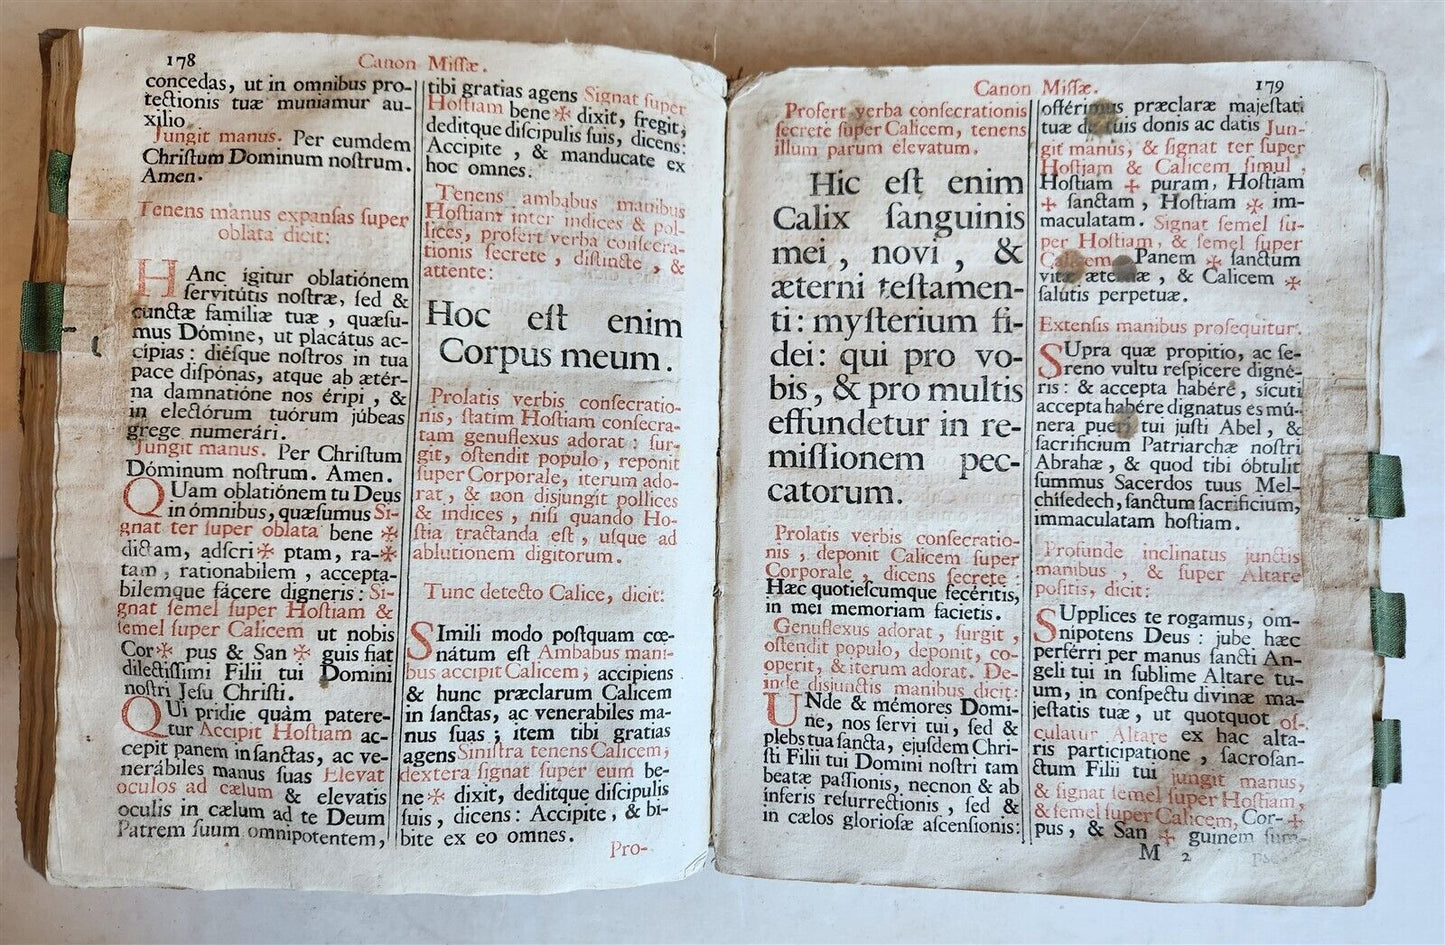 178
Canon Missæ.
concedas, ut in omnibus pro-
tectionis tuæ muniamur au-
xilio
Jungit manus. Per eumdem
Christum Dominum nostrum.
Amen.
Tenens manus expansas super
oblata dicit:
HAnc igitur oblatiónem
servitútis nostræ, sed &
cunctæ familiæ tuæ , quæsu-
mus Dómine, ut placátus ac-
cípias : diésque nostros in tua
pace dispónas, atque ab ætér-
na damnatióne nos éripi , &
in electórum tuórum júbeas
grege numerári.
Jungit manus. Per Christum
Dóminum nostrum. Amen.
QUam oblatiónem tu Deus
in ómnibus, quæsumus Si-
gnat ter super oblata bene ✠
dictam, adscri✠ ptam, ra-✠
tam , rationabilem , accepta-
bilemque fácere digneris : Si-
gnat semel super Hostiam &
semel super Calicem ut nobis
Cor✠ pus & San ✠ guis fiat
dilectissimi Filii tui Domini
nostri Jesu Christi.
QUi pridie quàm patere-
tur Accipit Hostiam ac-
cepit panem in sanctas, ac ve-
nerábiles manus suas Elevat
oculos ad cælum & elevatis
oculis in cælum ad te Deum
Patrem suum omnipotentem,
tibi gratias agens Signat super
Hostiam bene ✠ dixit, fregit,
deditque discipulis suis, dicens:
Accipite , & manducate ex
hoc omnes.
Tenens ambabus manibus
Hostiam inter indices & pol-
lices, profert verba consecra-
tionis secrete , distincte , &
attente:
Hoc est enim
Corpus meum.
Prolatis verbis consecratio-
nis, statim Hostiam consecra-
tam genuflexus adorat : sur-
git, ostendit populo, reponit
super Corporale, iterum ado-
rat , & non disjungit pollices
& indices , nisi quando Ho-
stia tractanda est , usque ad
ablutionem digitorum.
Tunc detecto Calice, dicit:
SImili modo postquam cœ-
nátum est Ambabus mani-
bus accipit Calicem; accipiens
& hunc præclarum Calicem
in sanctas, ac venerabiles ma-
nus suas ; item tibi gratias
agens Sinistra tenens Calicem,
dextera signat super eum be-
ne ✠ dixit, deditque discipulis
suis , dicens : Accipite , & bi-
bite ex eo omnes.
Pro-
Canon Missæ.
179
Profert verba consecrationis
secrete super Calicem, tenens
illum parum elevatum.
Hic est enim
Calix sanguinis
mei , novi , &
æterni testamen-
ti : mysterium fi-
dei : qui pro vo-
bis, & pro multis
effundetur in re-
missionem pec-
catorum.
Prolatis verbis consecratio-
nis , deponit Calicem super
Corporale, dicens secrete :
Hæc quotiescumque fecéritis,
in mei memoriam facietis.
Genuflexus adorat , surgit ,
ostendit populo, deponit, co-
operit, & iterum adorat. De-
inde disjunctis manibus dicit:
UNde & mémores Domi-
ne, nos servi tui, sed &
plebs tua sancta, ejusdem Chri-
sti Filii tui Domini nostri tam
beatæ passionis, necnon & ab
ínferis resurrectionis , sed &
in cælos gloriosæ ascensionis:
offérimus præclaræ majestati
tuæ de tuis donis ac datis Jun-
git manus, & signat ter super
Hostiam & Calicem simul ,
Hostiam ✠ puram, Hostiam
✠ sanctam , Hostiam ✠ im-
maculatam. Signat semel su-
per Hostiam, & semel super
Calicem Panem ✠ sanctum
vitæ æternæ , & Calicem ✠
salútis perpetuæ.
Extensis manibus prosequitur.
SUpra quæ propitio, ac se-
reno vultu respicere digné-
ris : & accepta habére, sicuti
accepta habére dignatus es mú-
nera pueri tui justi Abel , &
sacrificium Patriarchæ nostri
Abrahæ , & quod tibi óbtulit
summus Sacerdos tuus Mel-
chisedech, sanctum sacrificium,
immaculatam hostiam.
Profunde inclinatus junctis
manibus , & super Altare
positis, dicit:
SUpplices te rogamus, om-
nipotens Deus : jube hæc
perférri per manus sancti An-
geli tui in sublime Altare tu-
um, in conspectu divinæ ma-
jestatis tuæ, ut quotquot os-
culatur Altare ex hac alta-
ris participatione , sacrosan-
ctum Filii tui jungit manus,
& signat semel super Hostiam,
& semel super Calicem, Cor- ✠
pus, & San ✠ guinem sum-
M 2